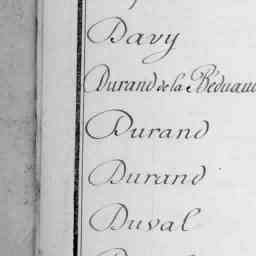 Davy
Durand de la
Durand
Durand
Duval